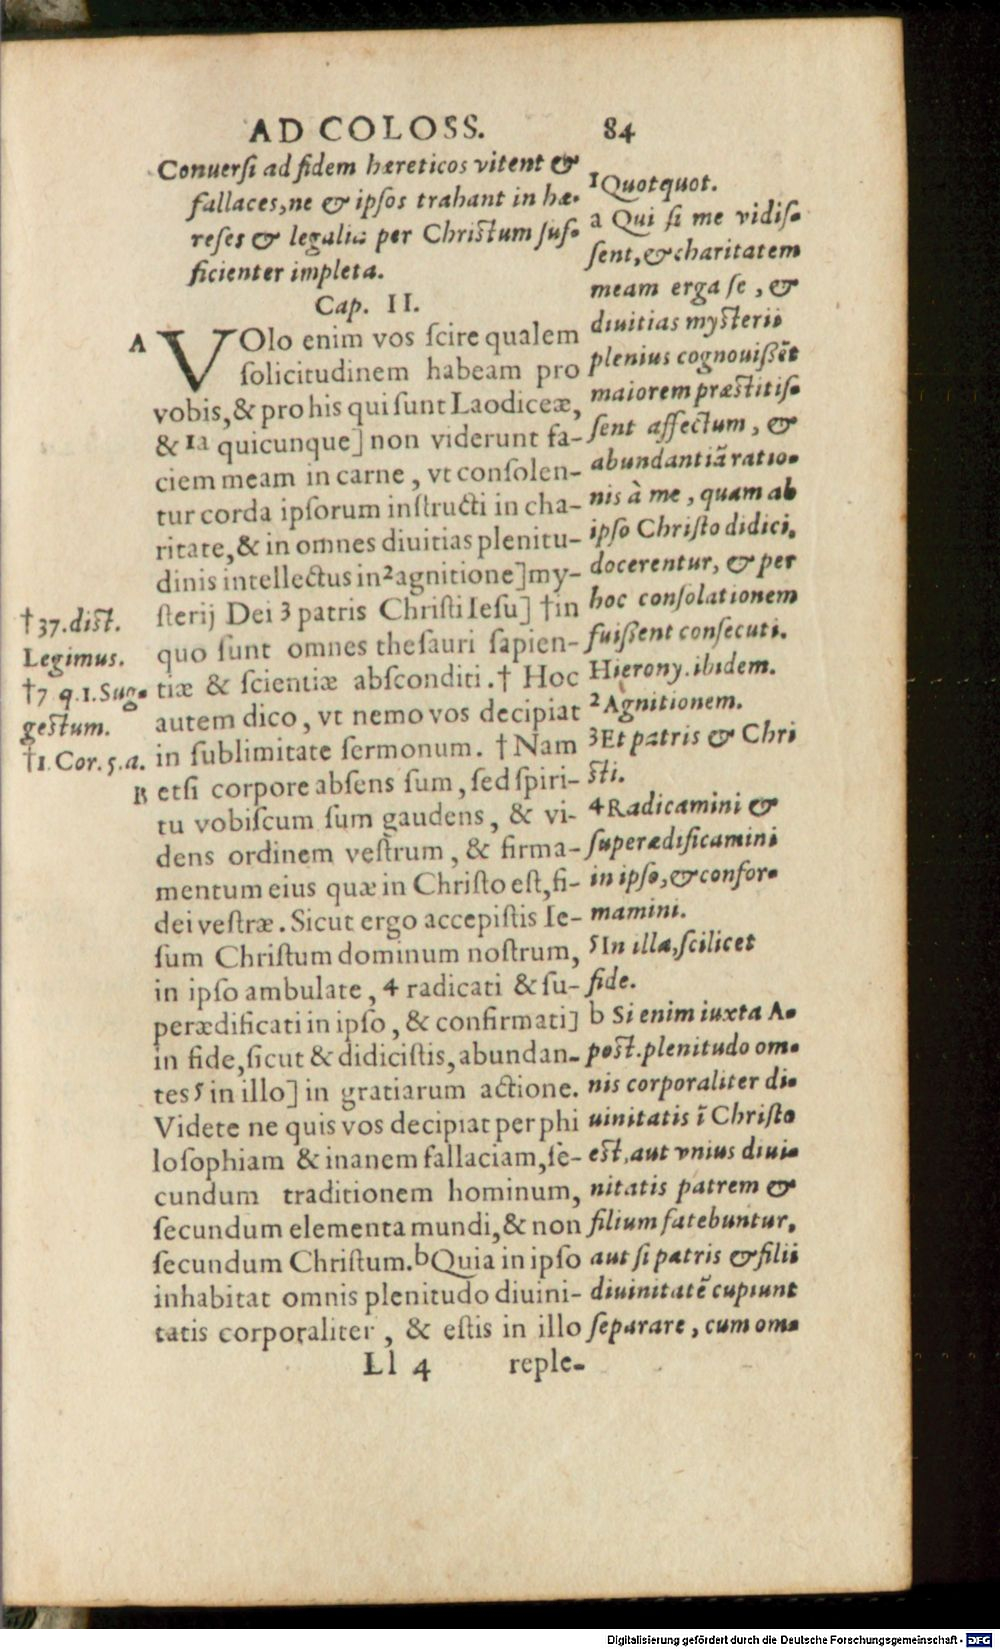 AD COLOSS. 84
Conuerſi ad fidem hæreticos vitent &
fallaces, ne & ipſos trahant in hæ-
reſes & legalia per Chriſtum ſuf-
ficienter impleta.
Cap. II.
A VOlo enim vos ſcire qualem
ſolicitudinem habeam pro
vobis, & pro his qui ſunt Laodiceæ,
& 1a quicunque] non viderunt fa-
ciem meam in carne, vt conſolen-
tur corda ipſorum inſtructi in cha-
ritate, & in omnes diuitias plenitu-
dinis intellectus in 2 agnitione] my-
ſterij Dei 3 patris Chriſti Ieſu] †in
quo ſunt omnes theſauri ſapien-
tiæ & ſcientiæ abſconditi. † Hoc
autem dico, vt nemo vos decipiat
in ſublimitate ſermonum. † Nam
B etſi corpore abſens ſum, ſed ſpiri-
tu vobiſcum ſum gaudens, & vi-
dens ordinem veſtrum, & firma-
mentum eius quæ in Chriſto eſt, fi-
dei veſtræ. Sicut ergo accepiſtis Ie-
ſum Chriſtum dominum noſtrum,
in ipſo ambulate, 4 radicati & ſu-
perædificati in ipſo, & confirmati]
in fide, ſicut & didiciſtis, abundan-
tes 5 in illo] in gratiarum actione.
Videte ne quis vos decipiat per phi
loſophiam & inanem fallaciam, ſe-
cundum traditionem hominum,
ſecundum elementa mundi, & non
ſecundum Chriſtum. b Quia in ipſo
inhabitat omnis plenitudo diuini-
tatis corporaliter, & eſtis in illo
Ll 4 reple-
†37. diſt.
Legimus.
†7. q. 1. Sug-
geſtum.
†1. Cor. 5. a.
1 Quotquot.
a Qui ſi me vidiſ-
ſent, & charitatem
meam erga ſe, &
diuitias myſterii
plenius cognouiſſēt
maiorem præſtitiſ-
ſent affectum, &
abundantiā ratio-
nis à me, quam ab
ipſo Chriſto didici,
docerentur, & per
hoc conſolationem
fuiſſent conſecuti.
Hierony. ibidem.
2 Agnitionem.
3 Et patris & Chri
ſti.
4 Radicamini &
ſuperædificamini
in ipſo, & confor-
mamini.
5 In illa, ſcilicet
fide.
b Si enim iuxta A-
poſt. plenitudo om-
nis corporaliter di-
uinitatis ī Chriſto
eſt, aut vnius diui-
nitatis patrem &
filium fatebuntur,
aut ſi patris & filii
diuinitatē cupiunt
ſeparare, cum om-
Digitalisierung gefördert durch die Deutsche Forschungsgemeinschaft - DFG